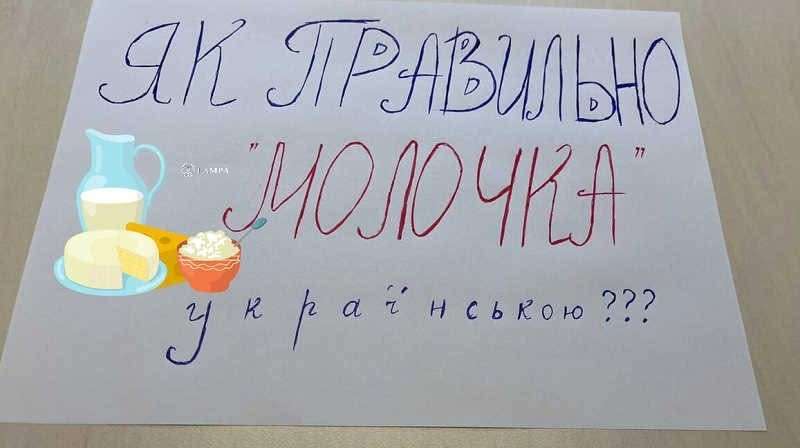 ЯК ПРАВИЛЬНО
LAMPA
"МОЛОЧКА"
українською???